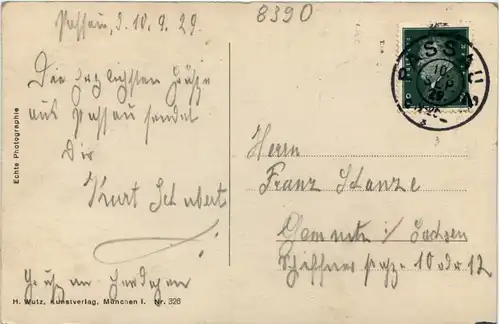 Passau, d. 10.9.29.
8390
Die herzlichsten Grüße
aus Passau sendet
Dir
Kurt Schubert
Echte Photographie
H. Wutz, Kunstverlag, München I. Nr. 326
PASSAU
Herrn
Franz Stanze
Chemnitz i/ Sachsen
10 od 12